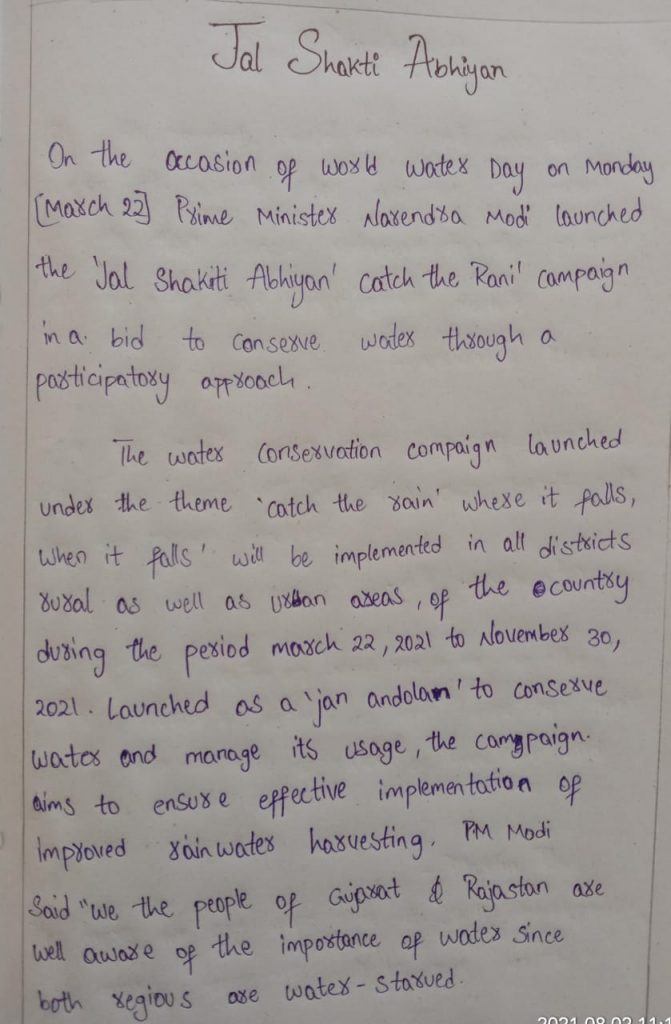 Jal Shakti Abhiyan
On the occasion of world water Day on Monday
[March 22] Prime Minister Narendra Modi launched
the 'Jal Shakiti Abhiyan' catch the Rani' campaign
in a bid to conserve water through a
participatory approach.
The water conservation compaign launched
under the theme 'catch the rain' where it falls,
when it falls' will be implemented in all districts
rural as well as urban areas, of the country
during the period march 22, 2021 to November 30,
2021. Launched as a 'jan andolan' to conserve
water and manage its usage, the campaign.
aims to ensure effective implementation of
improved rainwater harvesting. PM Modi
Said "we the people of Gujarat & Rajastan are
well aware of the importance of water since
both regious are water-starved.